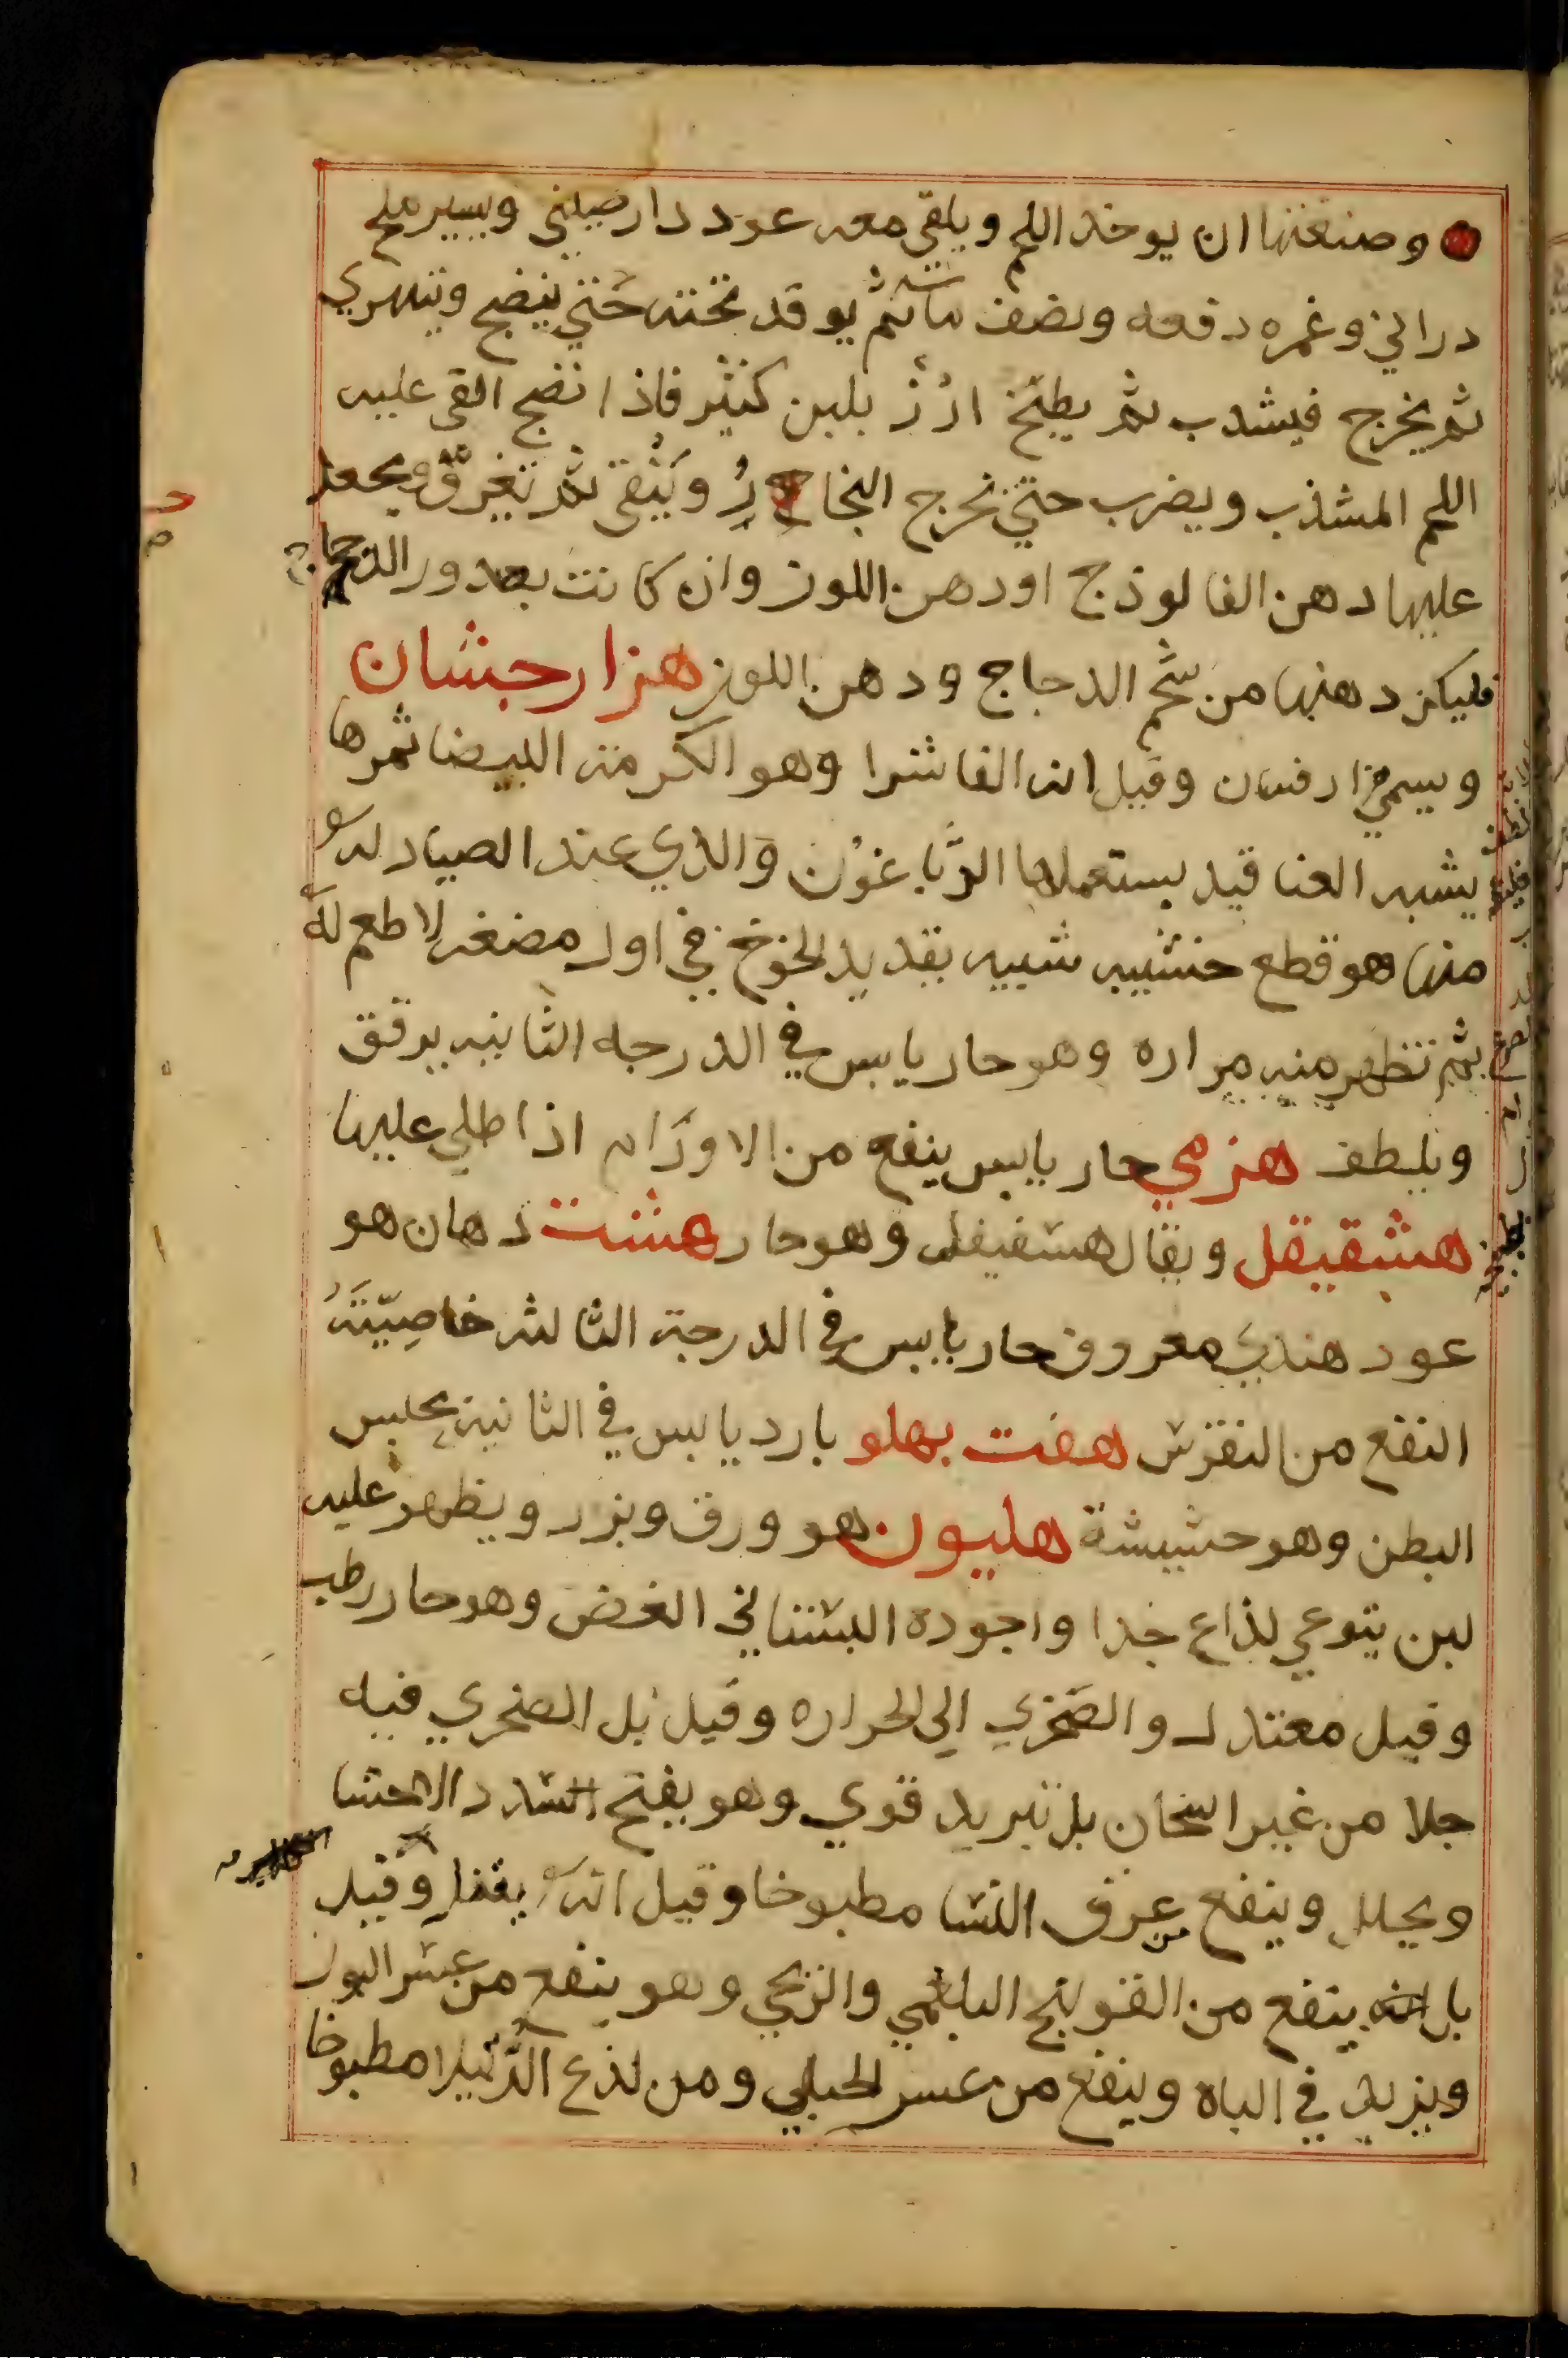 وصنعتها ان يوخذ اللحم ويلقى معه عود دار صيني ويسير ملح
دراني وغمره دفعه ونصف ماء ثم يوقد تحته حتى ينضج ويتهري
ثم يخرج فيشذب ثم يطبخ ارز بلبن كثير فاذا نضج القى عليه
اللحم المشذب ويضرب حتي تخرج ويبقى ثم تغرق ويجعل
عليها دهن الفالوذج او دهن اللوز وان كانت بصدور الدجاج
فليكن دهنها من شحم الدجاج ودهن اللوز هزار جشان
ويسمي زارفسان وقيل انه الفاشرا وهو الكرمة البيضا ثمرها
يشبه العناقيد يستعملها الدباغون والذي عند الصيادله
منها هو قطع خشبيه شبيه بقديد الخوخ في اول مضغه لا طعم له
ثم تظهر منه مراره وهو حار يابس في الدرجه الثانيه يرقق
ويلطف هزمي حار يابس ينفع من الاورام اذا طلي عليها
هشقيقل ويقال هسفيفل وهو حار هشت دهان هو
عود هندي معروف حار يابس في الدرجة الثالثه خاصيته
النفع من النقرس هفت بهلو بارد يابس في الثانية يحبس
البطن وهو حشيشة هليون هو ورق وبزر ويظهر عليه
لبن يتوعي لذاع جدا واجوده البستاني الغض وهو حار رطب
وقيل معتدل والصخري الي الحراره وقيل بل الصخري فيه
جلا من غير اسخان بل تبريد قوي وهو يفتح السدد الاحشا
ويحلل وينفع من عرق النسا مطبوخا وقيل انه يغفل وقيل
بل انه ينفع من القولنج البلغمي والريحي وهو ينفع من عسر البول
ويزيد في الباه وينفع من عسر الحبلي ومن لذع الرتيلا مطبوخا